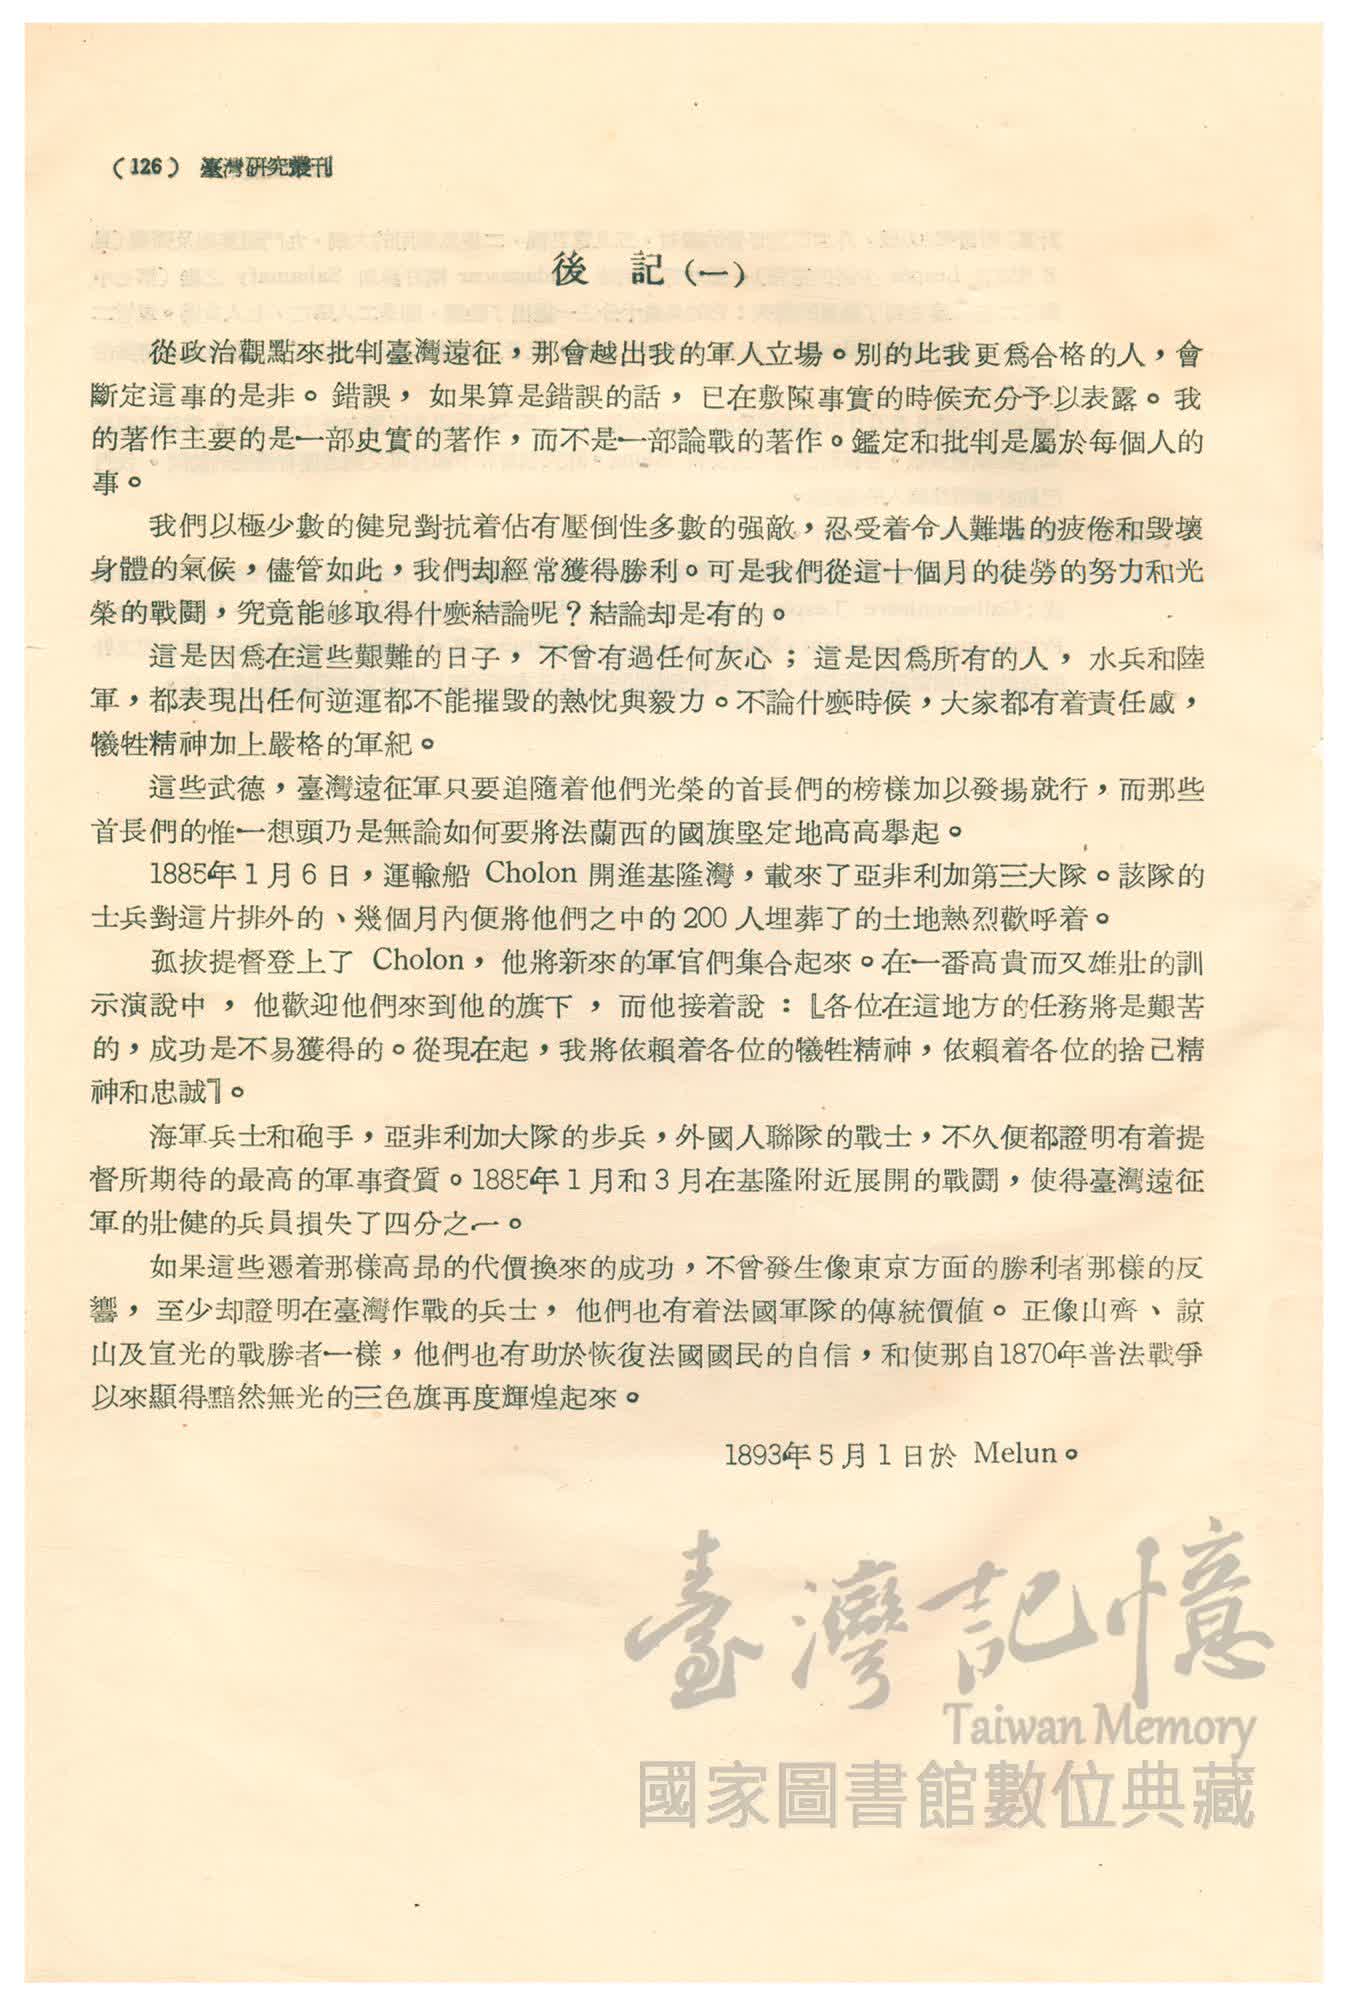 （126） 臺灣研究叢刊
後　記（一）
從政治觀點來批判臺灣遠征，那會越出我的軍人立場。別的比我更爲合格的人，會
斷定這事的是非。錯誤，如果算是錯誤的話，已在敷陳事實的時候充分予以表露。我
的著作主要的是一部史實的著作，而不是一部論戰的著作。鑑定和批判是屬於每個人的
事。
我們以極少數的健兒對抗着佔有壓倒性多數的强敵，忍受着令人難堪的疲倦和毀壞
身體的氣候，儘管如此，我們却經常獲得勝利。可是我們從這十個月的徒勞的努力和光
榮的戰鬪，究竟能够取得什麽結論呢？結論却是有的。
這是因爲在這些艱難的日子，不曾有過任何灰心；這是因爲所有的人，水兵和陸
軍，都表現出任何逆運都不能摧毀的熱忱與毅力。不論什麽時候，大家都有着責任感，
犧牲精神加上嚴格的軍紀。
這些武德，臺灣遠征軍只要追隨着他們光榮的首長們的榜樣加以發揚就行，而那些
首長們的惟一想頭乃是無論如何要將法蘭西的國旗堅定地高高擧起。
1885年1月6日，運輸船 Cholon 開進基隆灣，載來了亞非利加第三大隊。該隊的
士兵對這片排外的、幾個月內便將他們之中的200人埋葬了的土地熱烈歡呼着。
孤拔提督登上了 Cholon，他將新來的軍官們集合起來。在一番高貴而又雄壯的訓
示演說中，他歡迎他們來到他的旗下，而他接着說：『各位在這地方的任務將是艱苦
的，成功是不易獲得的。從現在起，我將依賴着各位的犧牲精神，依賴着各位的捨己精
神和忠誠』。
海軍兵士和砲手，亞非利加大隊的步兵，外國人聯隊的戰士，不久便都證明有着提
督所期待的最高的軍事資質。1885年1月和3月在基隆附近展開的戰鬪，使得臺灣遠征
軍的壯健的兵員損失了四分之一。
如果這些憑着那樣高昂的代價換來的成功，不曾發生像東京方面的勝利者那樣的反
響，至少却證明在臺灣作戰的兵士，他們也有着法國軍隊的傳統價值。正像山齊、諒
山及宣光的戰勝者一樣，他們也有助於恢復法國國民的自信，和使那自1870年普法戰爭
以來顯得黯然無光的三色旗再度輝煌起來。
1893年5月1日於 Melun。
臺灣記憶
Taiwan Memory
國家圖書館數位典藏